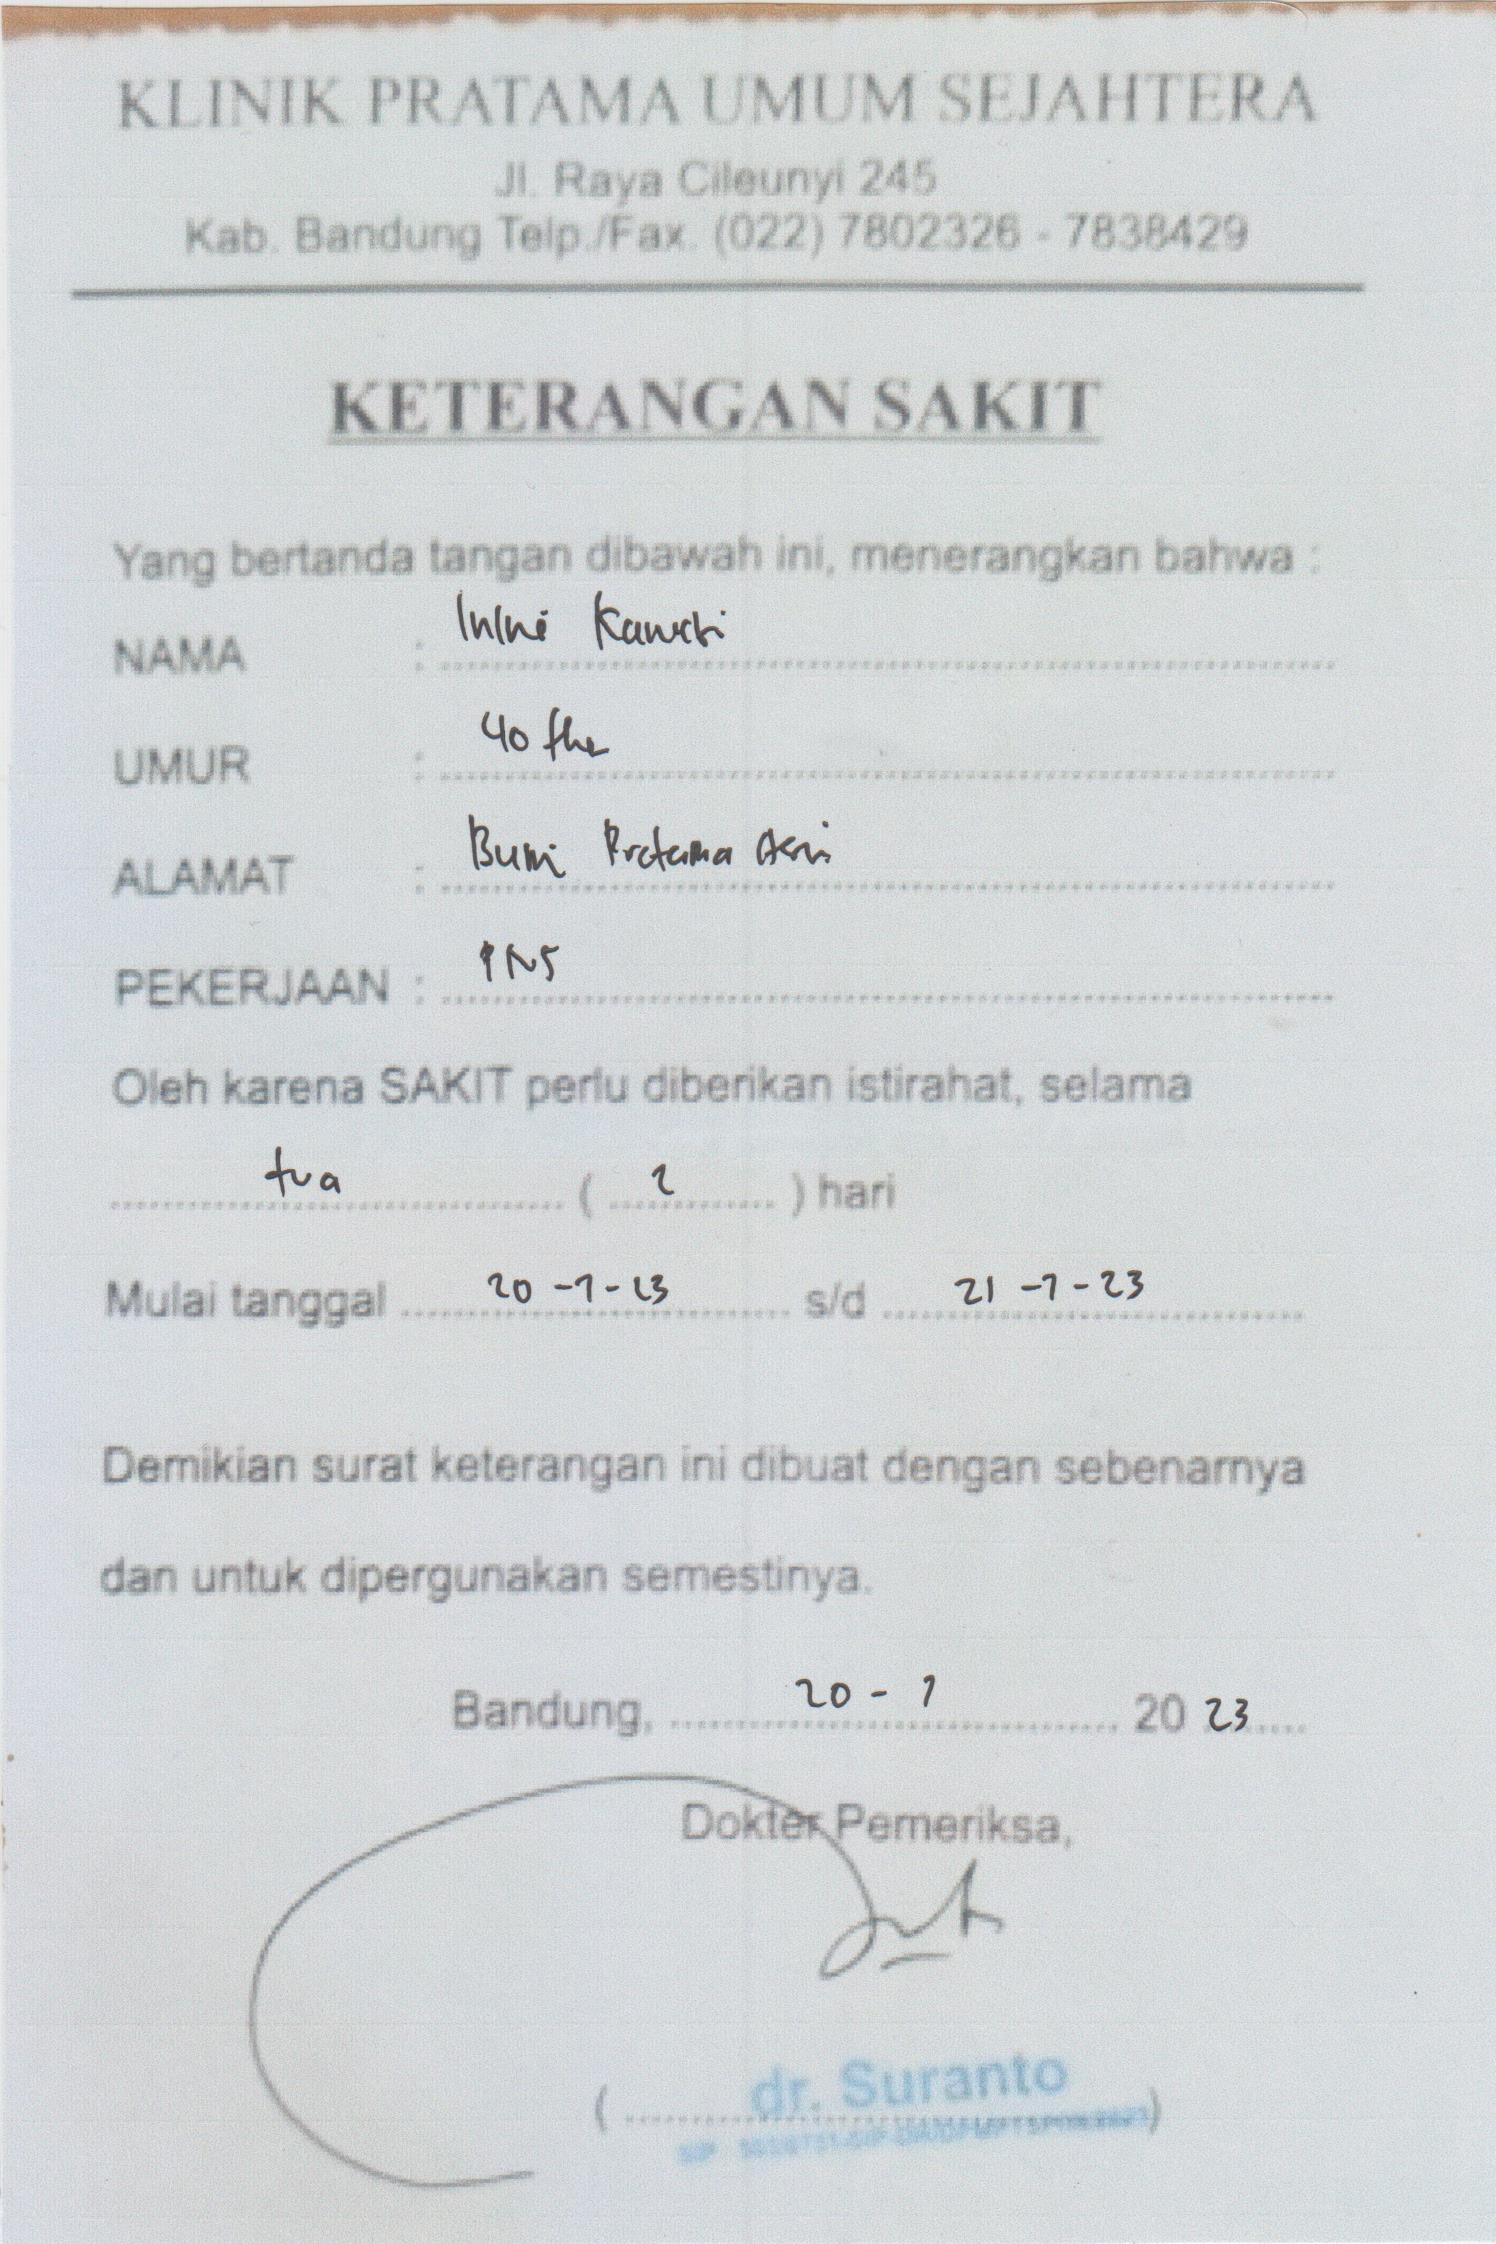 KLINIK PRATAMA UMUM SEJAHTERA
Jl. Raya Cileunyi 245
Kab. Bandung Telp./Fax. (022) 7802326 - 7838429
KETERANGAN SAKIT
Yang bertanda tangan dibawah ini, menerangkan bahwa :
NAMA :
UMUR : 40 thn
ALAMAT : Bumi Pratama Asri
PEKERJAAN : PNS
Oleh karena SAKIT perlu diberikan istirahat, selama
( 2 ) hari
Mulai tanggal 20 -7- 23 s/d 21 -7- 23
Demikian surat keterangan ini dibuat dengan sebenarnya
dan untuk dipergunakan semestinya.
Bandung, 20 - 7 20 23
Dokter Pemeriksa,
( dr. Suranto )
SIP